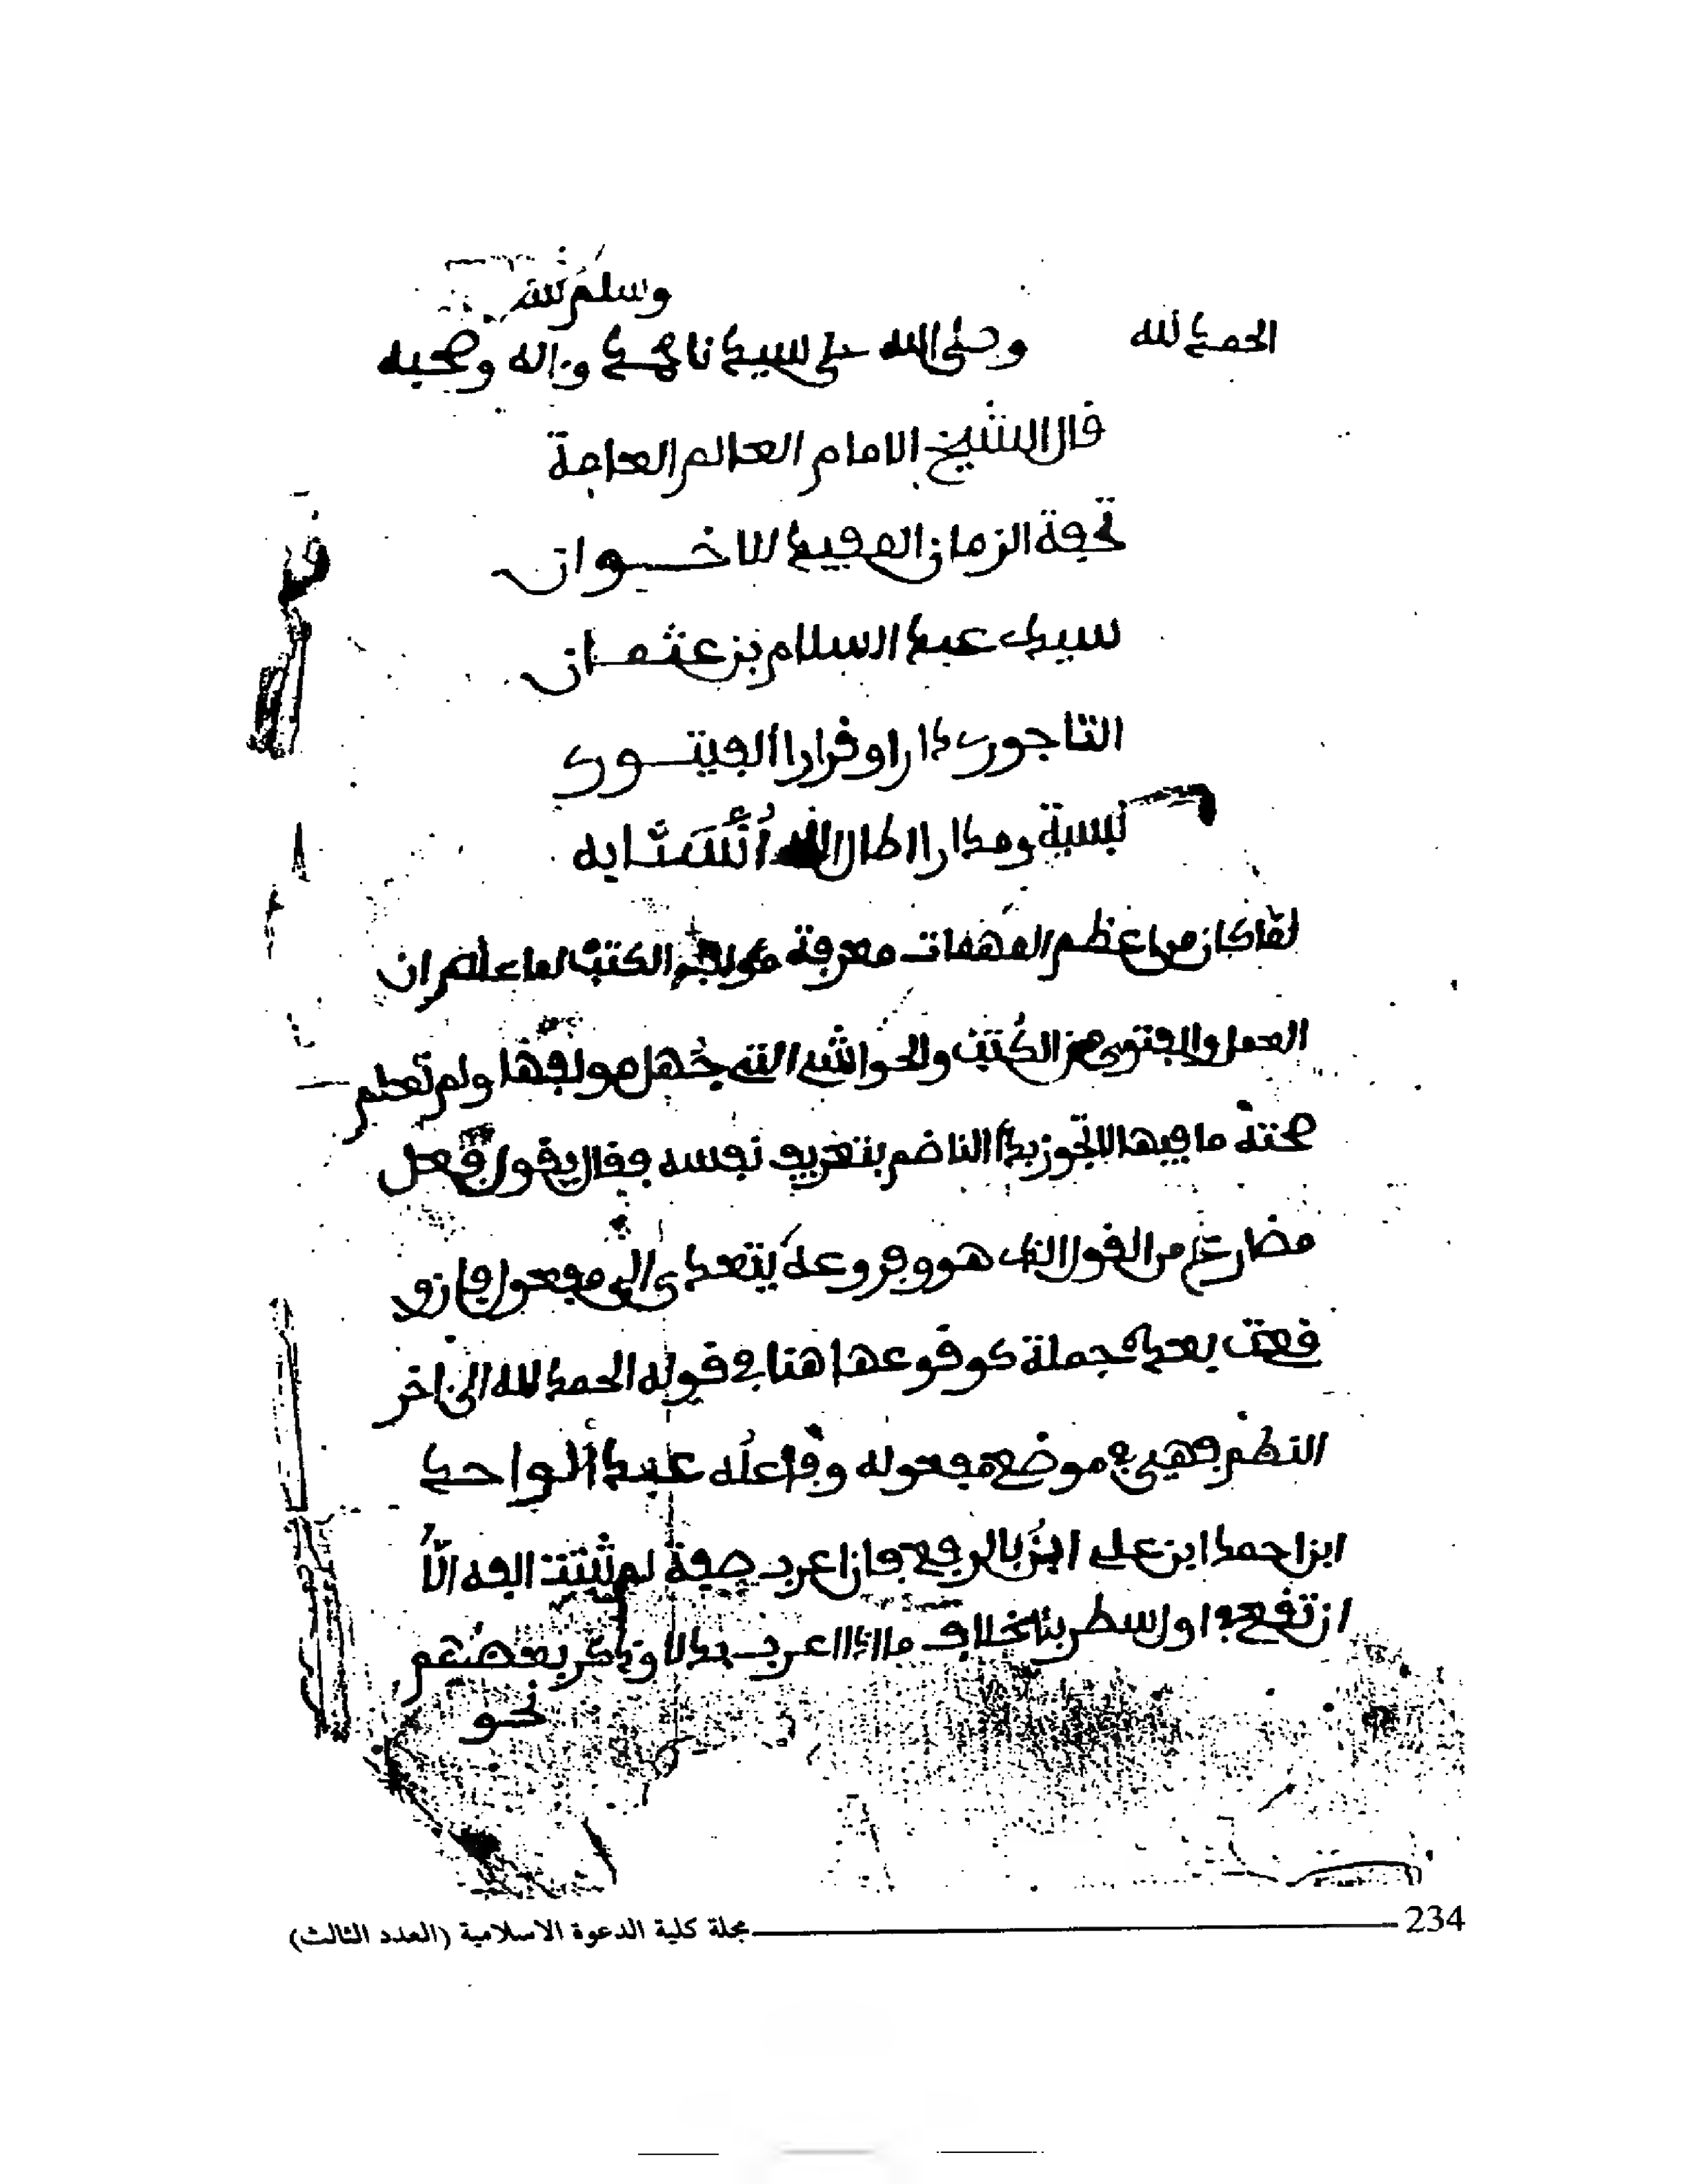 وسلم
الحمد لله وصلى الله على سيدنا محمد وءاله وصحبه
قال الشيخ الامام العالم العلامة
تحفة الزمان المفيد للاخوان
سيدى عبد السلام بن عثمان
التاجورى دارا وقرارا الفيتورى
نسبة ومدارا اطال الله أنسنا به
لما كان من اعظم المهمات معرفة مؤلف الكتب لما علم ان
العمل والفتوى من الكتب والحواشى التى جهل مولفها ولم تعلم
صحته ما فيها لا تجوز بدأ الناضم بتعريف نفسه فقال يقول فعل
مضارع من القول الذى هو وفروعه يتعدى الى مفعول فان و
قعت بعده جملة كوقوعها هنا فى قوله الحمد لله الى ءاخر
النظم فهى فى موضع مفعوله وفاعله عبد الواحد
ابن احمد ابن على ابن بالرفع فان اعرب صفة لم تثبت الفه الا
ان تقع اول سطر بخلاف ما اذا اعرب بدلا وذكر بعضهم
نحو
234 مجلة كلية الدعوة الاسلامية (العدد الثالث)